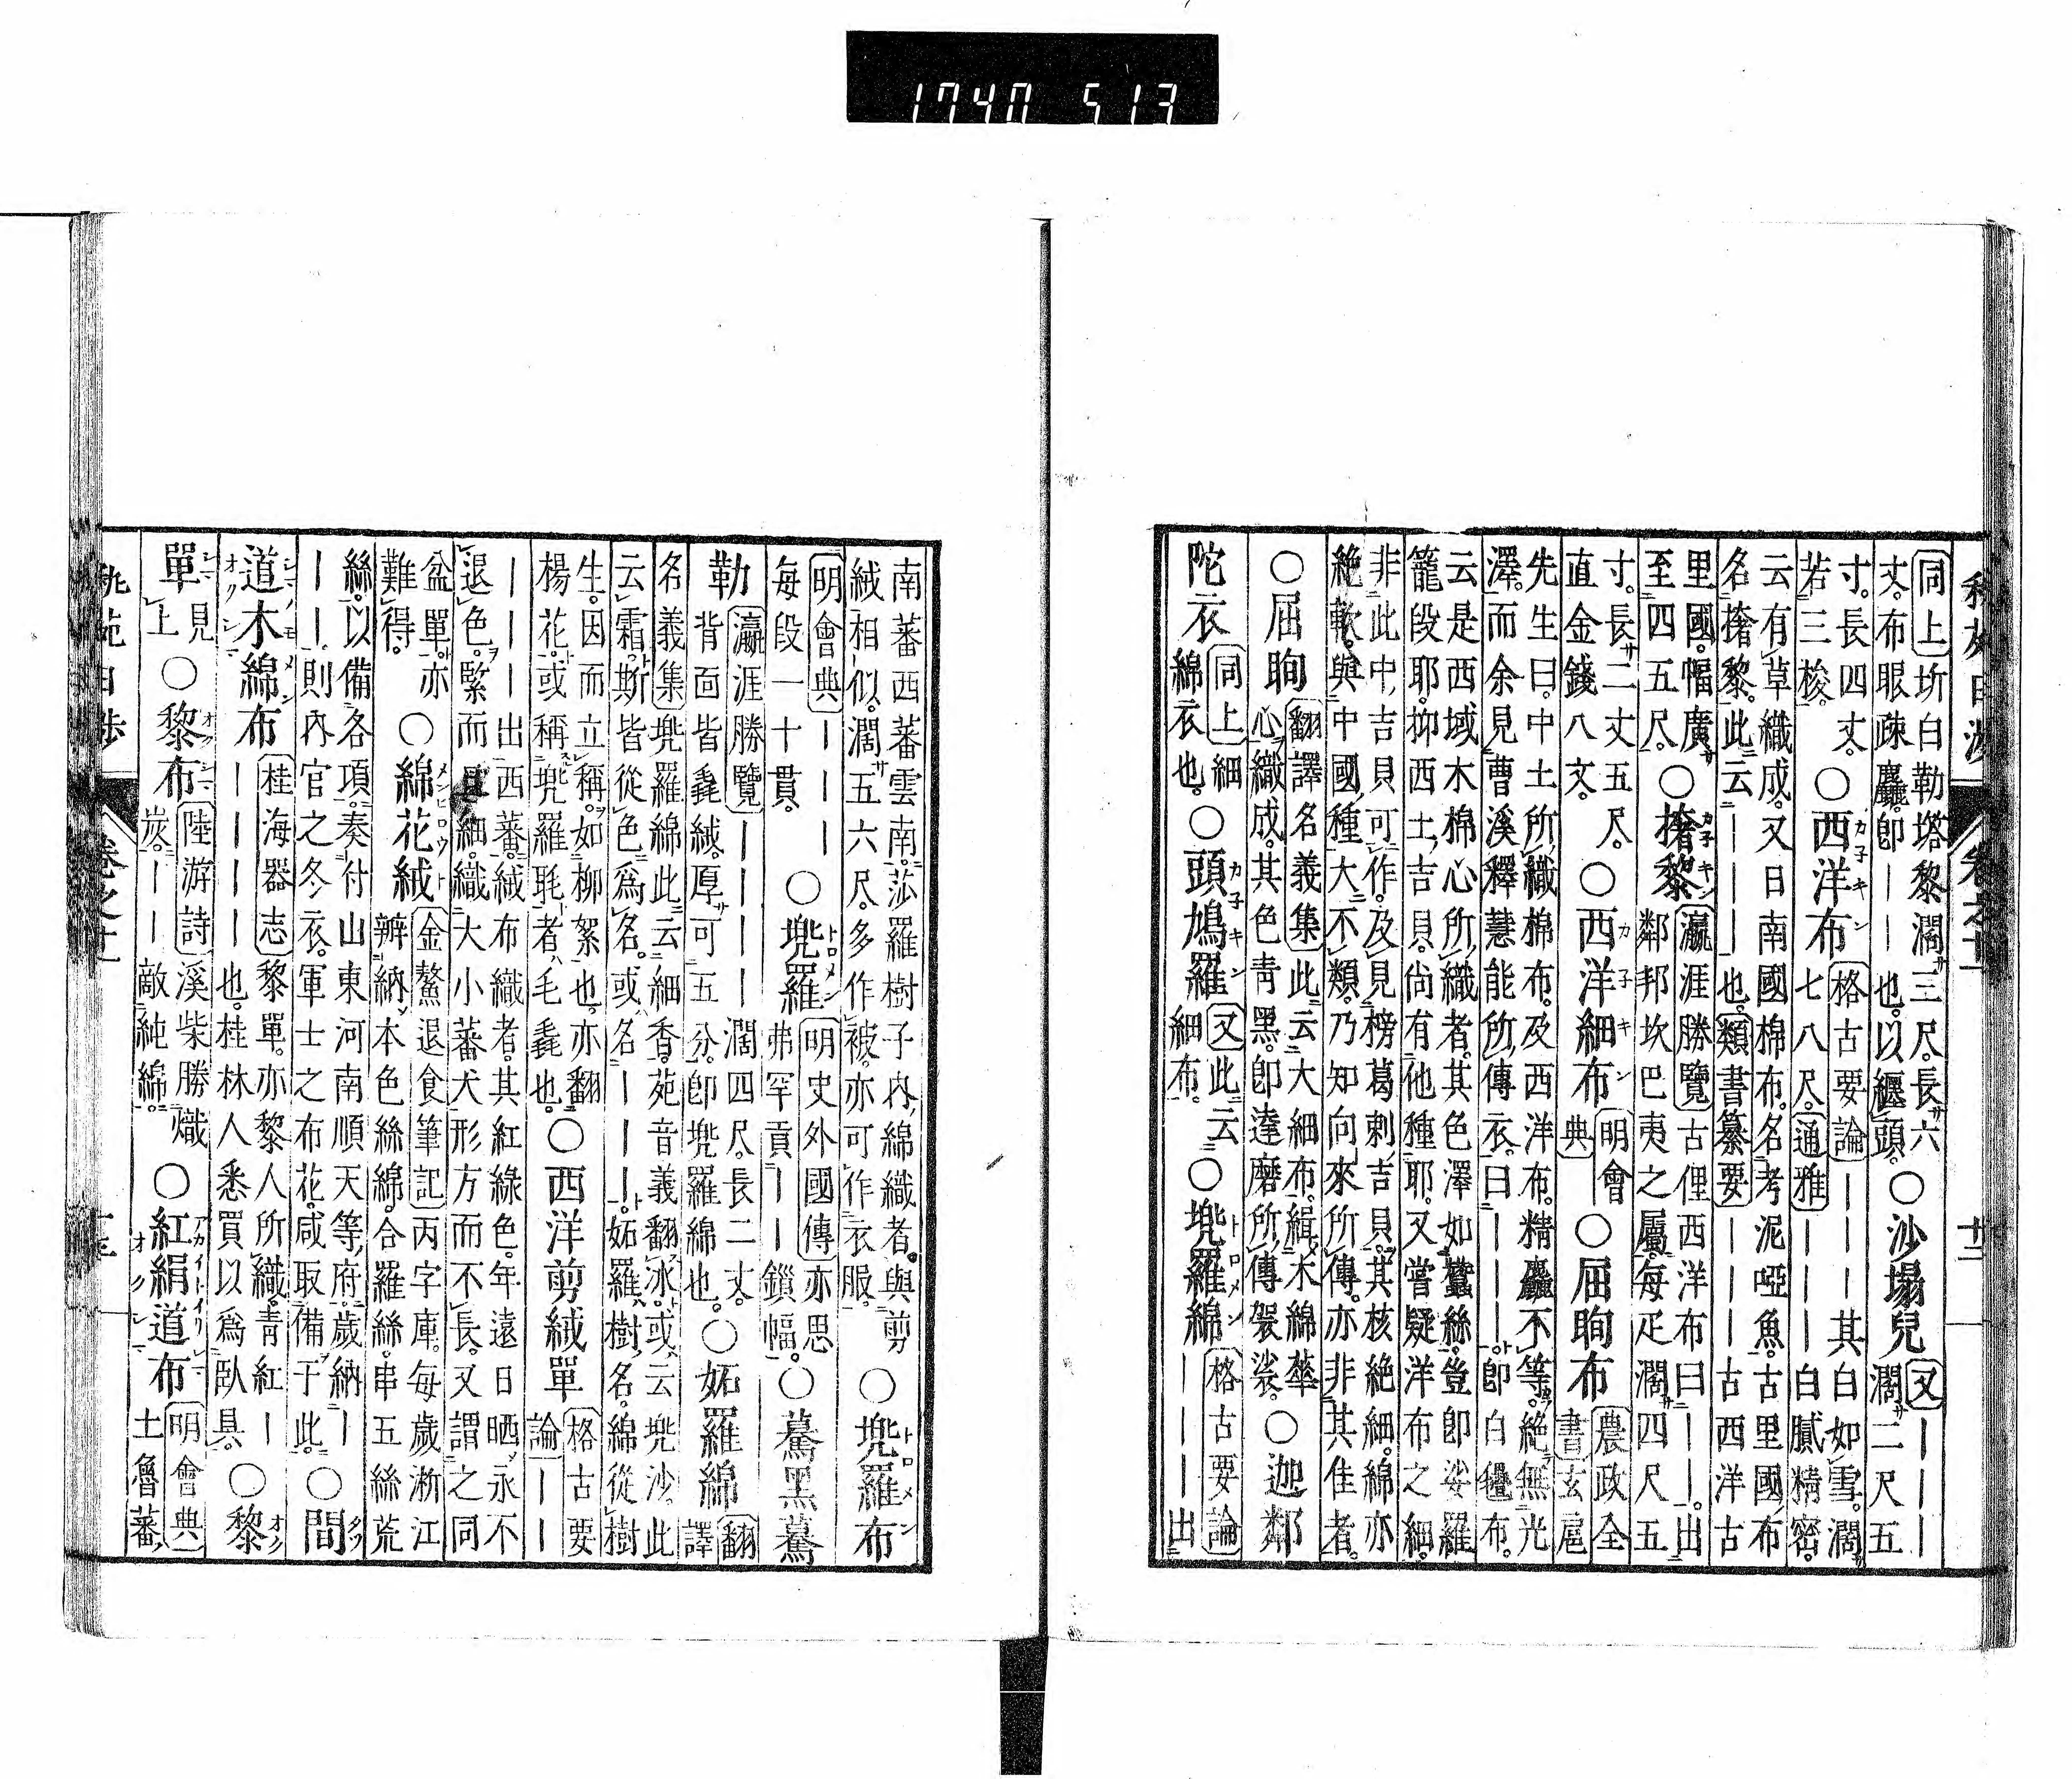 秇苑日渉 卷之十二 十二
同上 圻白勒塔黎濶三尺長六
丈布眼疎麤卽———也以纒頭 ○沙塲兒 又———
濶二尺五
寸長四丈
若三梭 ○西洋布 格古要論———其白如雪濶
七八尺通雅———白膩精密
云有草織成又日南國棉布名考泥啞魚古里國布
名撦黎此云————也類書纂要———古西洋古
里國幅廣
至四五尺 ○撦黎 瀛涯勝覽古俚西洋布曰——出
鄰邦坎巴夷之屬每疋濶四尺五
寸長二丈五尺
直金錢八文 ○西洋細布 明會
典— ○屈眴布 農政全
書玄扈
先生曰中土所織棉布及西洋布精麤不等絶無光
澤而余見曹溪釋慧能所傳衣曰———卽白㲲布
云是西域木棉心所織者其色澤如蠶絲豈卽娑羅
籠段耶抑西土吉貝尚有他種耶又嘗疑洋布之細
非此中吉貝可作及見榜葛剌吉貝其核絶細綿亦
絶軟與中國種大不類乃知向來所傳亦非其佳者
○屈眴 翻譯名義集此云大細布緝木綿華
心織成其色靑黑卽達磨所傳袈裟 ○迦鄰
陀衣 同上細
綿衣也 ○頭鳩羅 又此云
細布 ○兠羅綿 格古要論
———出
南蕃西蕃雲南莎羅樹子内綿織者與剪
絨相似濶五六尺多作被亦可作衣服 ○兠羅布
明會典———
每段一十貫 ○兠羅 明史外國傳亦思
弗罕貢——鎖幅 ○驀黑驀
勒 瀛涯勝覽————濶四尺長二丈
背面皆毳絨厚可五分卽兠羅綿也 ○妬羅綿 翻
譯
名義集兠羅綿此云細香苑音義翻氷或云兠沙此
云霜斯皆從色爲名或名———妬羅樹名綿從樹
生因而立稱如柳絮也亦翻
楊花或稱兠羅毦者毛毳也 ○西洋剪絨單 格古要
論——
———出西蕃絨布織者其紅綠色年遠日晒永不
退色緊而且細織大小蕃犬形方而不長又謂之同
盆單亦
難得 ○綿花絨 金鰲退食筆記丙字庫每歲淅江
辨納本色絲綿合羅絲串五絲荒
絲以備各項奏付山東河南順天等府歲納—
———則内官之冬衣軍士之布花咸取備于此 ○間
道木綿布 桂海器志黎單亦黎人所織靑紅—
————也桂林人悉買以爲臥具 ○黎
單 見
上 ○黎布 陸游詩溪柴勝熾
炭——敵純綿 ○紅絹道布 明會典
土魯蕃
秇苑日渉 卷之十二 十三
1740 513